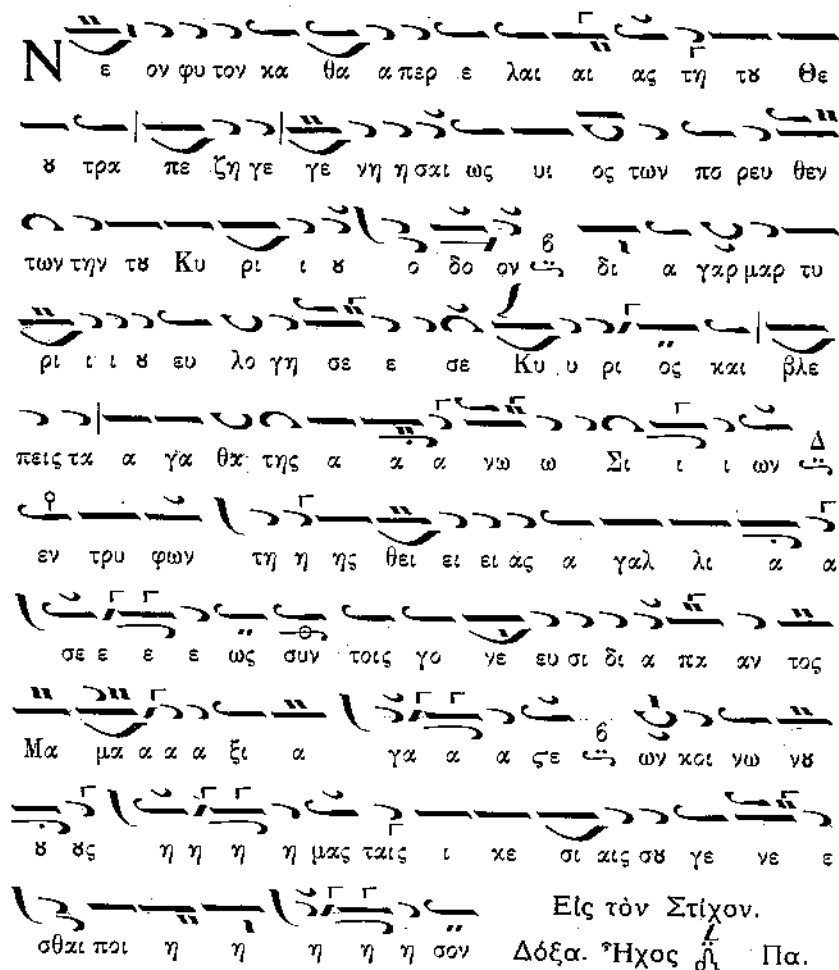 Ν ε ον φυ τον κα θα α περ ε λαι αι ας τη τȣ Θε
ȣ τρα πε ζη γε γε νη η σαι ως υι ος των πο ρευ θεν
των την τȣ Κυ ρι ι ȣ ο δο ον δι α γαρ μαρ τυ
ρι ι ι ȣ ευ λο γη σε ε σε Κυ υ ρι ος και βλε
πεις τα α γα θα της α α α νω ω Σι ι ι ων Δ
εν τρυ φων τη η ης θει ει ει ας α γαλ λι α α
σε ε ε ε ως συν τοις γο νε ευ σι δι α πα αν τος
Μα μα α α α ξι α γα α α α ςε ων κοι νω νȣ
ȣ ȣς η η η η μας ταις ι κε σι αις σȣ γε νε ε
σθαι ποι η η η η η σον Εἰς τὸν Στίχον.
Δόξα. Ἦχος Πα.